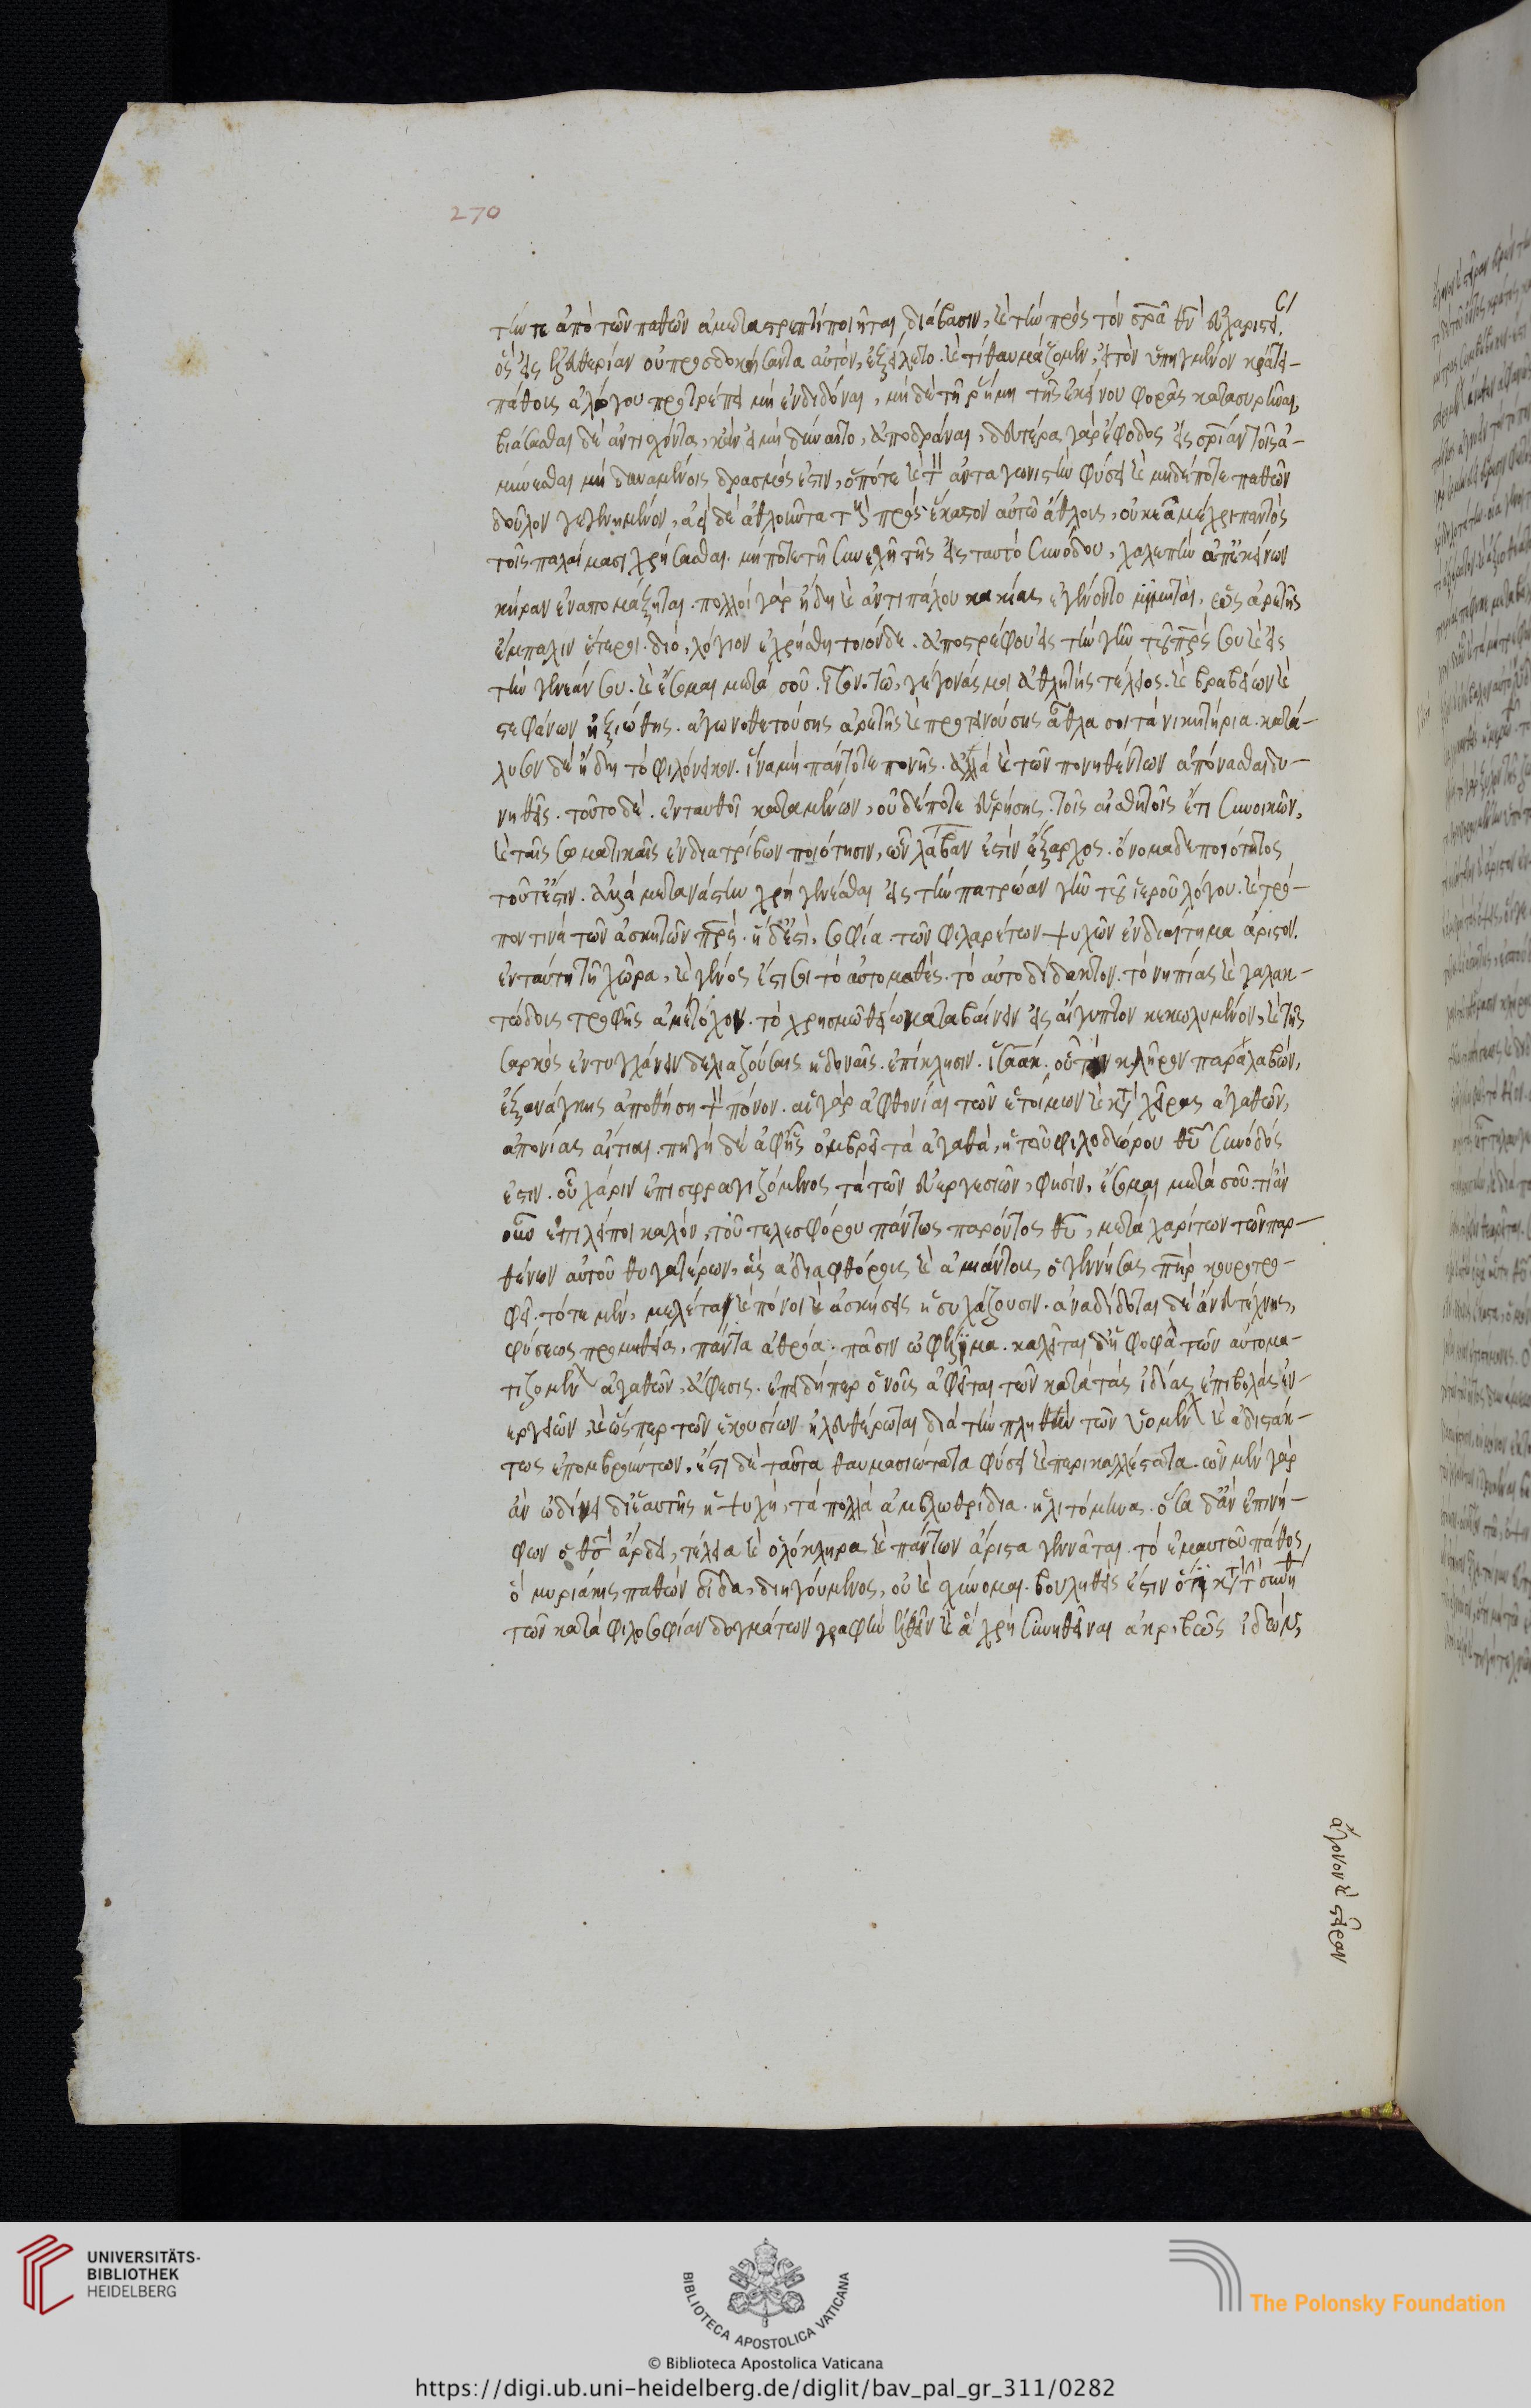 270
τήν τε ἀπὸ τῶν παθῶν ἀμεταστρεπτὶ ποιῆται διάβασιν, καὶ τὴν πρὸς τὸν σρᾱ θν̄ εὐχαριστεῖ.
ὃς εἰς ἐλευθερίαν οὐ προσδοκήσαντα αὐτὸν, ἐξείλετο. καὶ τί θαυμάζομεν, εἰ τὸν ὑπηγμένον κράτει
πάθους ἀλόγου προτρέπει μὴ ἐνδιδόναι, μὴ δὲ τῇ ῥύμῃ τῆς ἐκείνου φορᾶς κατασυρῆναι,
βιάσασθαι δὲ ἀντισχόντα, κἂν εἰ μὴ δύναιτο, ἀποδρᾶναι, δευτέρα γὰρ ἔφοδος εἰς σρίαν τοῖς ἀ-
μύνεσθαι μὴ δυναμένοις δρασμός ἐστιν, ὁπότε καὶ τ ἀνταγωνιστὴν φύσει καὶ μηδέποτε παθῶν
δοῦλον γεγενημένον, ἀεὶ δὲ ἀθλοῦντα τοὺς πρὸς ἕκαστον αὐτῶ ἄθλους, οὐκ ἐᾶ μέχρι παντὸς
τοῖς παλαίμασι χρήσασθαι. μή ποτε τῇ συνεχῆ τῆς εἰς ταυτὸ συνόδου, χαλεπὴν ἀπ' ἐκείνων
κήραν ἐναπομάξηται. πολλοὶ γὰρ ἤδη καὶ ἀντιπάλου κακίας ἐγένοντο μϊμηταί, ὡς ἀρετῆς
ἔμπαλιν ἕτεροι. διὸ, λόγιον ἐχρήσθη τοιόνδε. ἀποστρέφου εἰς τὴν γῆν τοῦ πρς̄ σου καὶ εἰς
τὴν γενεάν σου. καὶ ἔσομαι μετὰ σοῦ. ἴσον. τῶ, γέγονάς μοι ἀθλητὴς τέλειος. καὶ βραβείων καὶ
στεφάνων ἠξιώθης. ἀγωνοθετούσης ἀρετῆς καὶ προτεινούσης ἆθλα σοι τὰ νικητήρια. κατά-
λυσον δὲ ἤδη τὸ φιλόνεικον. ἵνα μὴ πάντοτε πονῆς. ἀλλὰ καὶ τῶν πονηθέντων ἀπόνασθαι δυ-
νηθῆς. τοῦτο δὲ. ἐνταυθοῖ καταμένων, οὐδέποτε εὑρήσης. τοῖς αἰσθητοῖς ἔτι συνοικῶν,
καὶ ταῖς σωματικαῖς ἐνδιατρίβων ποιότησιν, ὧν λάβαν ἐστὶν ἔξαρχος. ὄνομα δὲ ποιότητος
τοῦτ' ἔστιν. ἀλλὰ μετανάστην χρὴ γενέσθαι εἰς τὴν πατρώαν γῆν τοῦ ἱεροῦ λόγου. καὶ τρό-
πον τινὰ τῶν ἀσκητῶν πρς̄. ἡ δ' ἐστὶ, σοφία. τῶν φιλαρέτων ψυχῶν ἐνδιαίτημα ἄριστον.
ἐν ταύτη τῆ χώρα, καὶ γένος ἔστι σοι τὸ αὐτομαθὲς. τὸ αὐτοδίδακτον. τὸ νηπίας καὶ γαλακ-
τώδους τροφῆς ἀμέτοχον. τὸ χρησμῶ θείω καταβαίνειν εἰς αἴγυπτον κεκωλυμένον, καὶ τῆς
σαρκὸς ἐντυγχάνειν δελεαζούσαις ἡδοναῖς. ἐπίκλησιν. ἰσαάκ. οὗ τὸν κλῆρον παραλαβὼν,
ἐξανάγκης ἀποθήση τ πόνον. αἱ γὰρ ἀφθονίαι τῶν ἑτοίμων καὶ κτ χεῖρας ἀγαθῶν,
ἀπονίας αἴτιαι. πηγὴ δὲ ἀφ' ἧς ὀμβρεῖ τὰ ἀγαθὰ, ἡ τοῦ φιλοδώρου θῡ σύνοδός
ἐστιν. οὗ χάριν ἐπισφραγιζόμενος τὰ τῶν εὐεργεσιῶν, φησίν, ἔσομαι μετὰ σοῦ. τί ἂν
οὖν ἐπιλείποι καλὸν, τοῦ τελεσφόρου πάντως παρόντος θῡ, μετὰ χαρίτων τῶν παρ-
θένων αὐτοῦ θυγατέρων, ἃς ἀδιαφθόρους καὶ ἀμιάντους ὁ γεννήσας πηρ̄ κουροτρο-
φεῖ. τότε μὲν, μελέται καὶ πόνοι καὶ ἀσκήσεις ἡσυχάζουσιν. ἀναδίδοται δὲ ἄνευ τέχνης,
φύσεως προμηθεία, πάντα ἀθρόα. πᾶσιν ὠφέλιμα. καλεῖται δ' ἡ φορὰ τῶν αὐτομα-
τιζομένων ἀγαθῶν, ἄφεσις. ἐπειδήπερ ὁ νοῦς ἀφεῖται τῶν κατὰ τὰς ἰδίας ἐπιβολὰς ἐν-
εργειῶν, καὶ ὥσπερ τῶν ἑκουσίων ἠλευθέρωται διὰ τὴν πληθὺν τῶν ὑομένων καὶ ἀδιαστάκ-
τως ἐπομβρούντων, ἔστι δὲ ταῦτα θαυμασιώτατα φύσει καὶ περικαλλέστατα. ὧν μὲν γὰρ
ἂν ὠδίνει δι' ἑαυτῆς ἡ ψυχὴ, τὰ πολλὰ ἀμβλωθρίδια. ἠλιτόμηνα. ὅσα δ' ἂν ἐπινί-
φων ὁ θς̄ ἄρδει, τέλεια καὶ ὁλόκληρα καὶ πάντων ἄριστα γεννᾶται. τὸ ἐμαυτοῦ πάθος,
ὃ μυριάκις παθὼν οἶδα, διηγούμενος, οὐκ αἰσχύνομαι. βουληθεὶς ἔστιν ὅτε κτ τ συνήθη
τῶν κατὰ φιλοσοφίαν δογμάτων γραφὴν ἐλθεῖν καὶ ἃ χρὴ συνθεῖναι ἀκριβῶς εἰδὼς,
ἄγονον καὶ στεῖραν
UNIVERSITÄTS-
BIBLIOTHEK
HEIDELBERG
BIBLIOTECA APOSTOLICA VATICANA
The Polonsky Foundation
© Biblioteca Apostolica Vaticana
https://digi.ub.uni-heidelberg.de/diglit/bav_pal_gr_311/0282